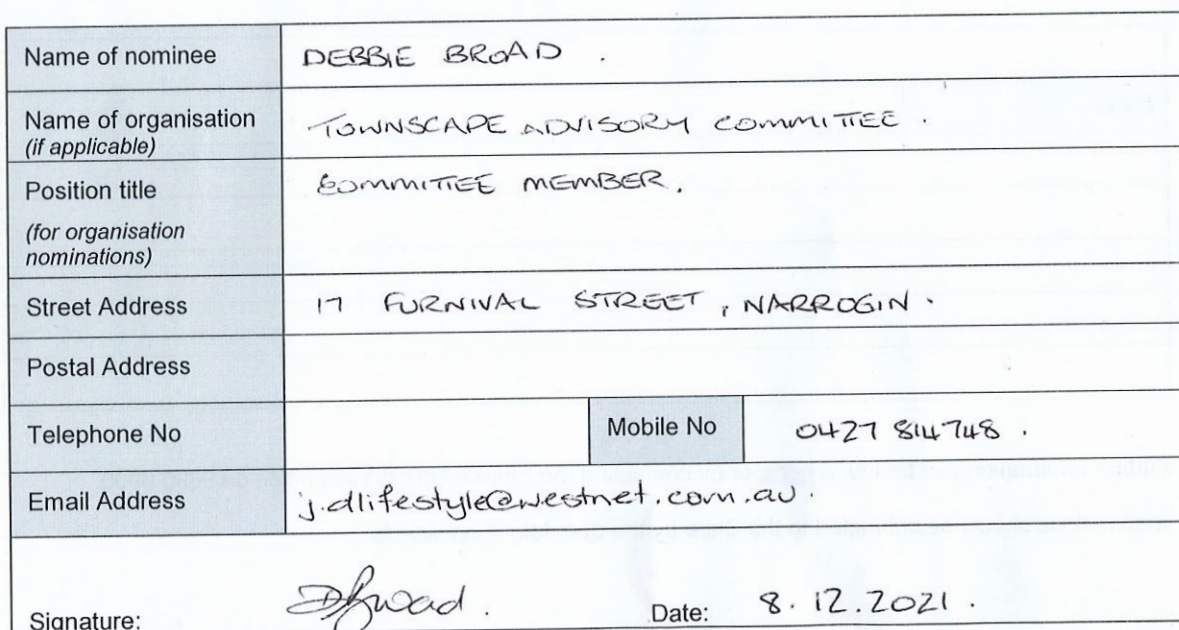 Name of nominee DEBBIE BROAD .
Name of organisation TOWNSCAPE ADVISORY COMMITTEE .
(if applicable)
Position title COMMITTEE MEMBER.
(for organisation
nominations)
Street Address 17 FURNIVAL STREET , NARROGIN .
Postal Address
Telephone No Mobile No 0427 814748 .
Email Address j.dlifestyle@westnet.com.au .
Signature: DBroad . Date: 8.12.2021 .